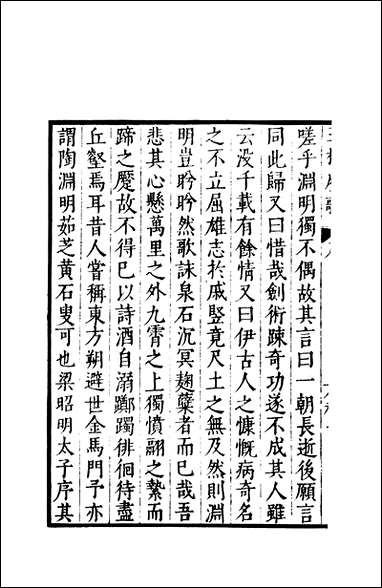 嗟乎淵明獨不偶故其言曰一朝長逝後願言
同此歸又曰惜哉劍術踈奇功遂不成其人雖
云没千載有餘情又曰伊古人之慷慨病奇名
之不立屈雄志扵戚竪竟尺土之無及然則淵
明豈盻盻然歌詠泉石沉冥麹蘖者而已哉吾
悲其心懸萬里之外九霄之上獨憤翮之縶而
蹄之蹷故不得已以詩酒自溺躑躅徘徊待盡
丘壑焉耳昔人嘗稱東方朔避世金馬門予亦
謂陶淵明茹芝黄石叟可也梁昭明太子序其